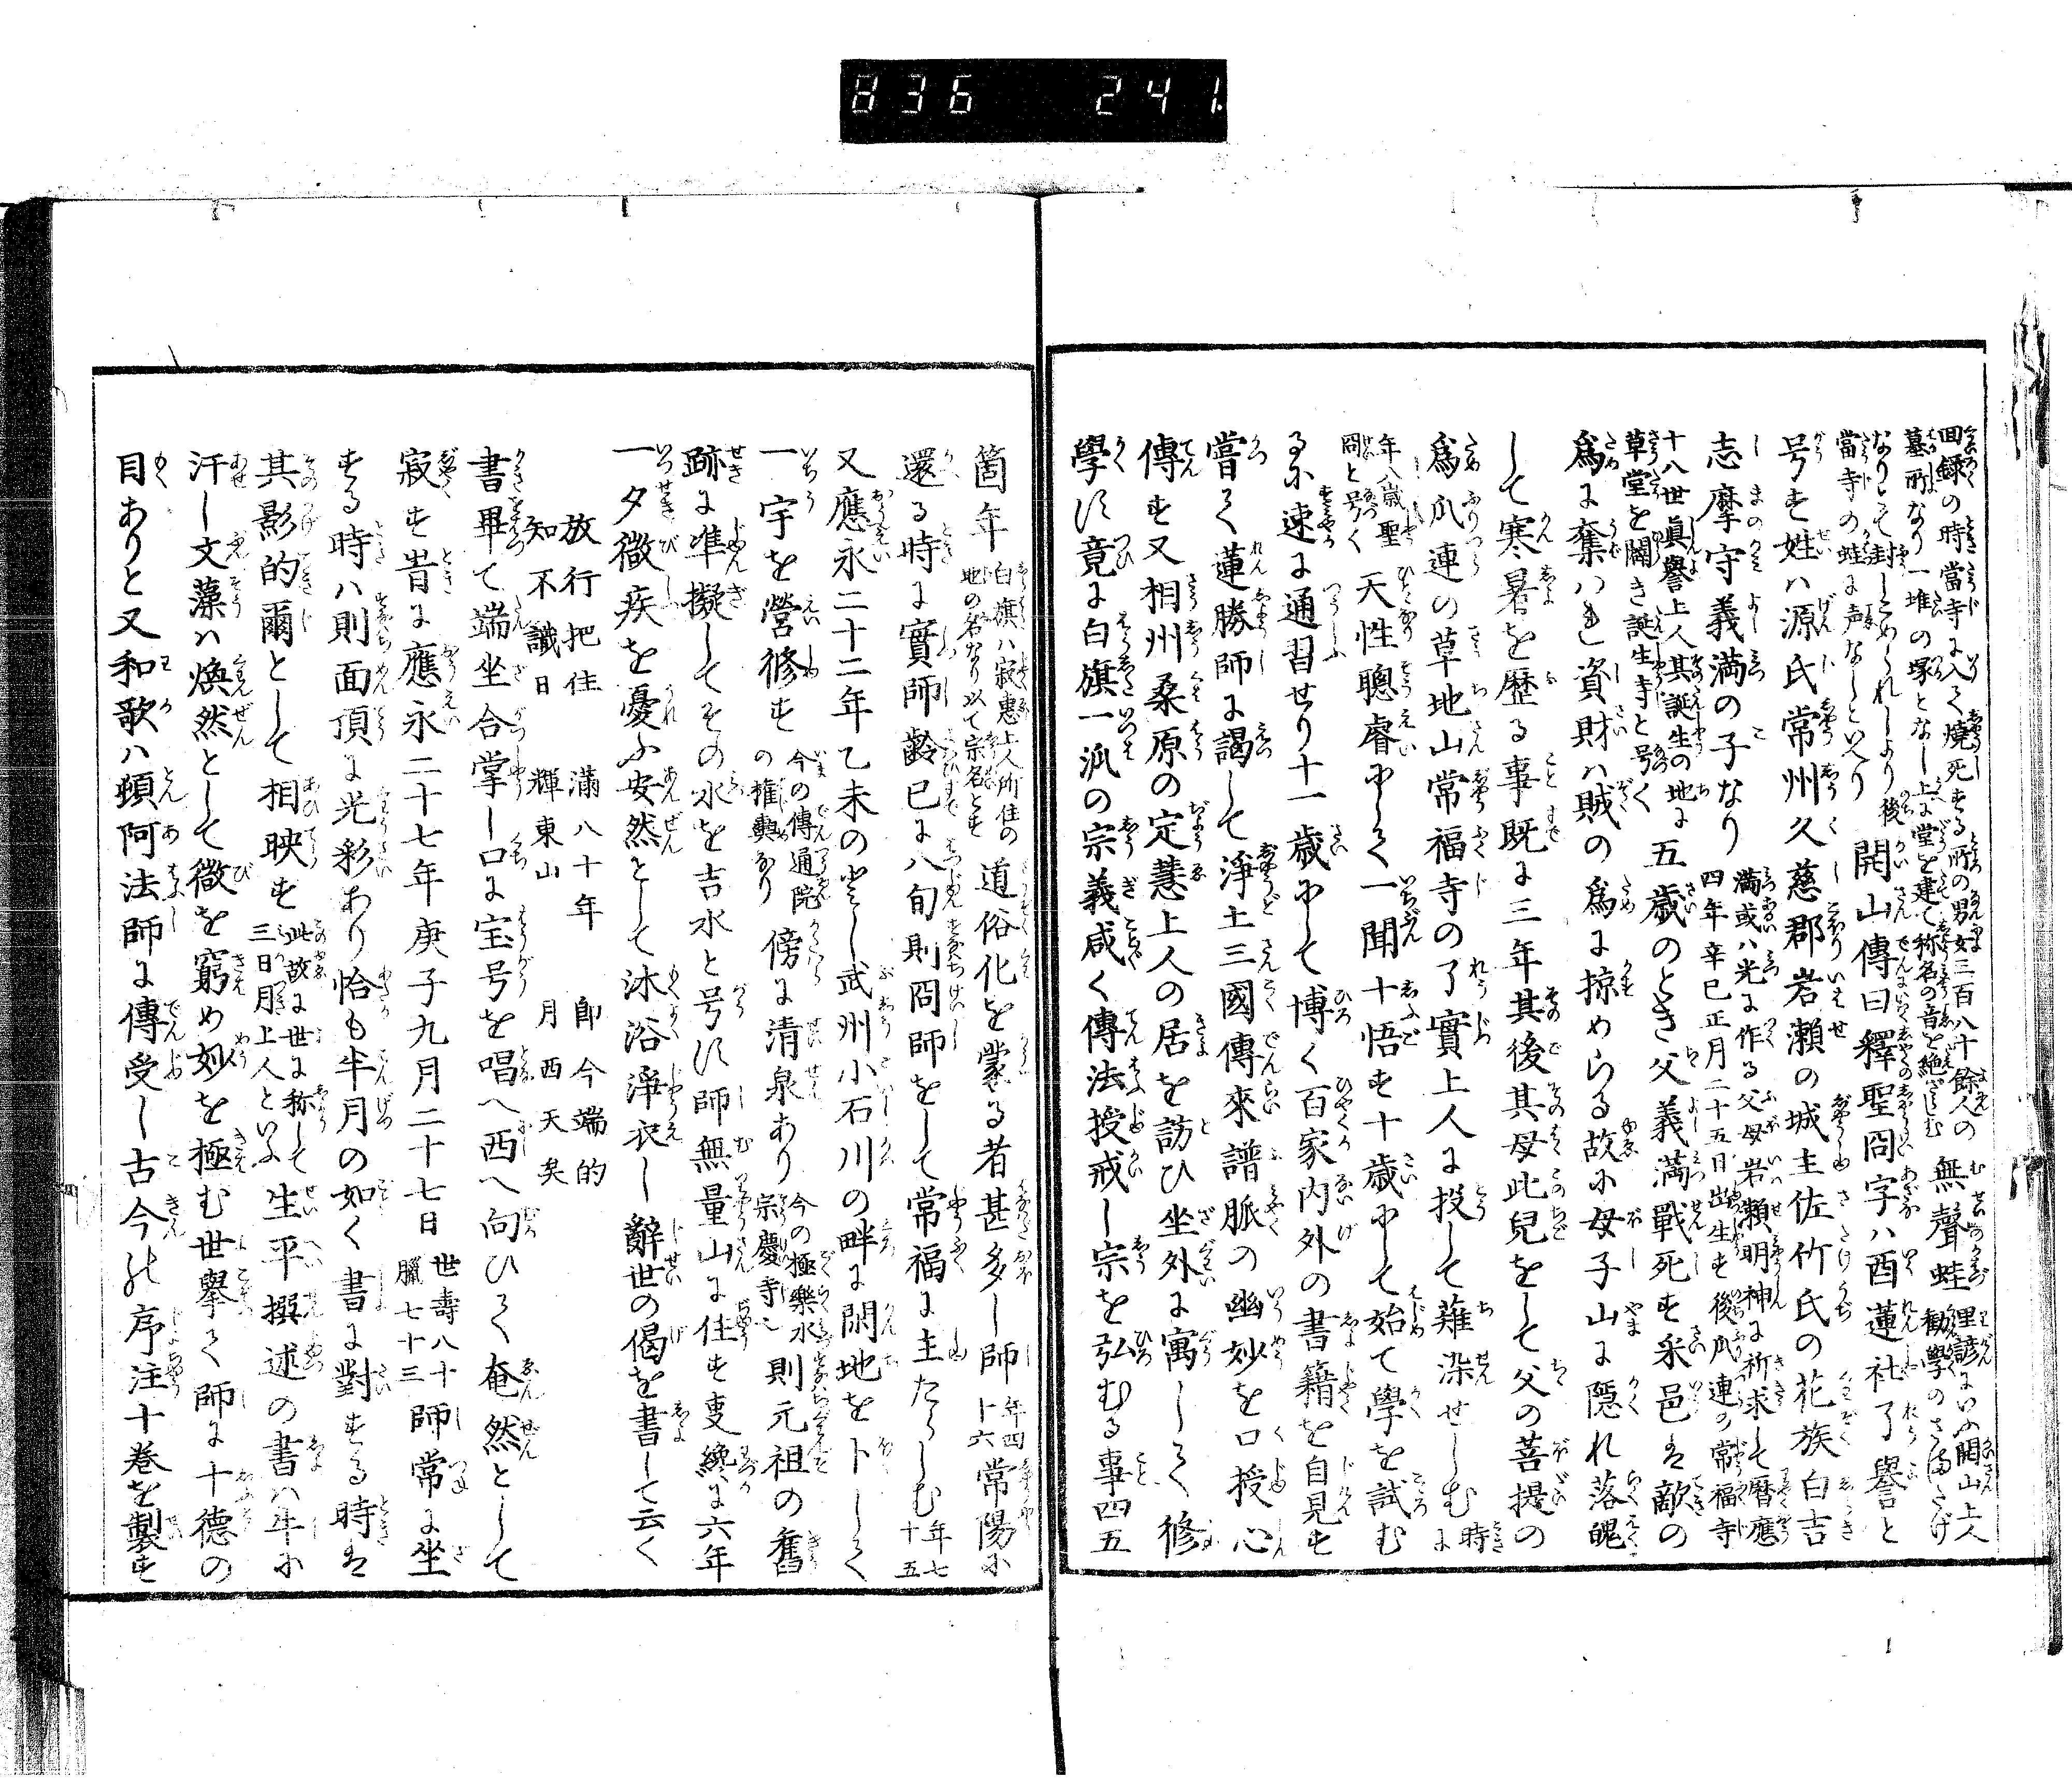 836 241.
回録の時當寺に入て燒死する所の男女三百八十餘人の
墓所なり一堆の塚となし上に堂を建て称名の音を絶ざらしむ
無聲蛙 里諺にいふ開山上人勸學のさまたげ
なりとて封しこめられしより後
當寺の蛙に声なしといへり
開山傳曰釋聖冏字ハ酉蓮社了譽と
号す姓ハ源氏常州久慈郡岩瀬の城主佐竹氏の花族白吉
志摩守義満の子なり 満或ハ光に作る父母岩瀬明神に祈求して暦應
四年辛巳正月二十五日出生す後瓜連の常福寺
十八世眞譽上人其誕生の地に
草堂を闢き誕生寺と号く
五歳のとき父義満戰死す采邑は敵の
爲に奪ハれ資財ハ賊の爲に掠めらる故に母子山に隠れ落魄
して寒暑を歴る事既に三年其後其母此兒をして父の菩提の
爲瓜連の草地山常福寺の了實上人に投して薙染せしむ 時に
年八歳聖
冏と号く
天性聰睿にして一聞十悟す十歳にして始て學を試む
るに速に通習せり十一歳にして博く百家内外の書籍を自見す
嘗て蓮勝師に謁して淨土三國傳來譜脈の幽妙を口授心
傳す又相州桑原の定慧上人の居を訪ひ坐外に寓して修
學し竟に白旗一派の宗義咸く傳法授戒し宗を弘むる事四五
箇年 白旗ハ寂惠上人所住の
地の名なり以て宗名とす
道俗化を蒙る者甚多し師 年四
十六
常陽に
還る時に實師齡已に八旬則冏師をして常福に主たらしむ 年七
十五
又應永二十二年乙未の冬し武州小石川の畔に閑地を卜して
一宇を營修す 今の傳通院
の権輿なり
傍に清泉あり 今の極樂水
宗慶寺
則元祖の舊
跡に準擬してその水を吉水と号し師無量山に住す叓纔に六年
一夕微疾を憂ふ安然として沐浴淨衣し辭世の偈を書して云く
放行把住 満八十年 即今端的
知不識日 輝東山 月西天矣
書畢て端坐合掌し口に宝号を唱へ西へ向ひて奄然として
寂す旹に應永二十七年庚子九月二十七日 世壽八十
臘七十三
師常に坐
する時ハ則面頂に光彩あり恰も半月の如く書に對する時は
其影的爾として相映す 此故に世に称して
三日月上人といふ
生平撰述の書ハ牛に
汗し文藻ハ煥然として微を窮め妙を極む世擧て師に十德の
目ありと又和歌ハ頓阿法師に傳受し古今の序注十巻を製す